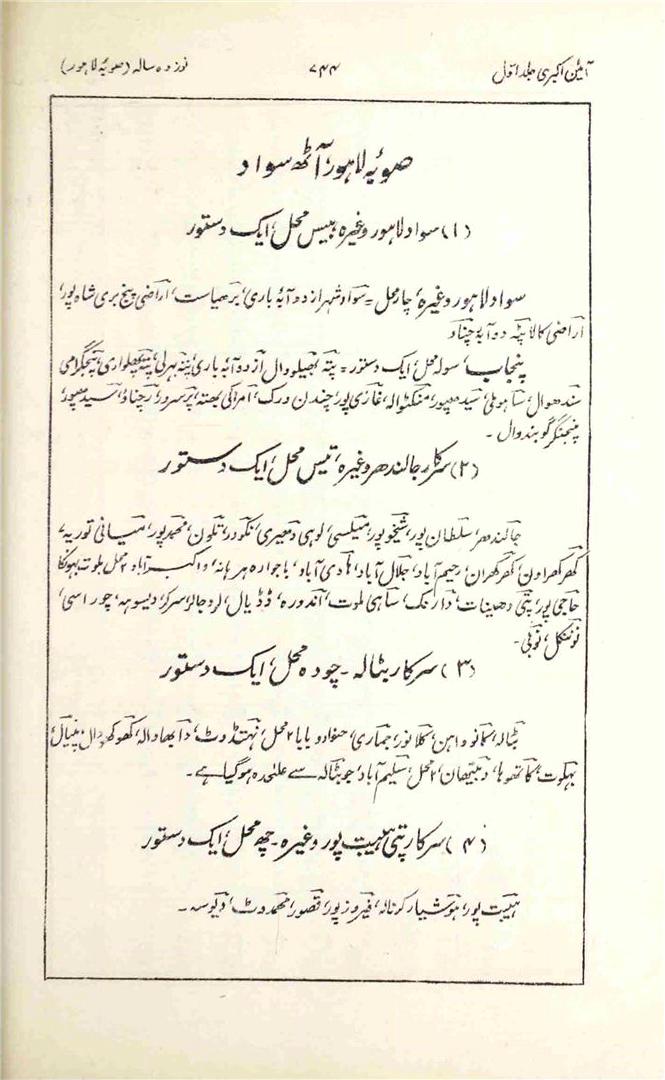 آئین اکبری جلد اول
۷۴۴
نوزدہ سالہ (صوبۂ لاہور)
صوبۂ لاہور، آٹھ سواد
(۱) سواد لاہور وغیرہ، بیس محل، ایک دستور
سواد لاہور وغیرہ، چار محل = سواد شہر از دوآبۂ باری، برھیاست، اراضی پنج بری شاہ پور،
اراضی کالاپنڈ دوآبۂ چناؤ
پنجاب، سولہ محل، ایک دستور = پتہ بھیلووال از دوآبۂ باری، پتہ بہرلی، پتہ پھلواری، پنجگرامی
سندھوال، ساہوملی، سیدھپور، منکٹوالہ، غازی پور، چندن ورک، امراکی بھتہ، پرسرور، رچناؤ، سیدھپور،
پنجنگر گوبندوال ۔
(۲) سرکار جالندھر وغیرہ، تیس محل، ایک دستور
جالندھر، سلطان پور، شیخوپور، میلسی، لوہی دھیری، نکودر، تلون، محمد پور، میانی نوریہ ۷
کھرکھراون، کھرکھران، رحیم آباد، جلال آباد، ھادی آباد، باجوارہ، ھرھانہ، و اکبرآباد ۲ محل، بلوت، بھونکا
حاجی پور، پتی دھینات، دارنک، ساہی ملوت، اندورہ، ڈڈیال، لردجالر، سرکر، دیسوہہ، چوراسی،
نوننگل، نوہلی۔
(۳) سرکار بٹالہ ۔ چودہ محل، ایک دستور
بٹالہ، کانوواہن، کلانور، جماری، ھنوادو بابا ۲ محل، تہنڈوٹ، دابھاوالہ، کھوکھووال، پنیال،
بہلوت، کاتھوہا، و بیٹھان، ۲ محل، سلیم آباد، جو بٹالہ سے علیٰحدہ ہوگیا ہے۔
(۴) سرکار پتی ہیبت پور وغیرہ ۔ چھ محل، ایک دستور
ہیبت پور، ہوشیار کرنالہ، فیروزپور، قصور، محمد وٹ، دیوسہ ۔